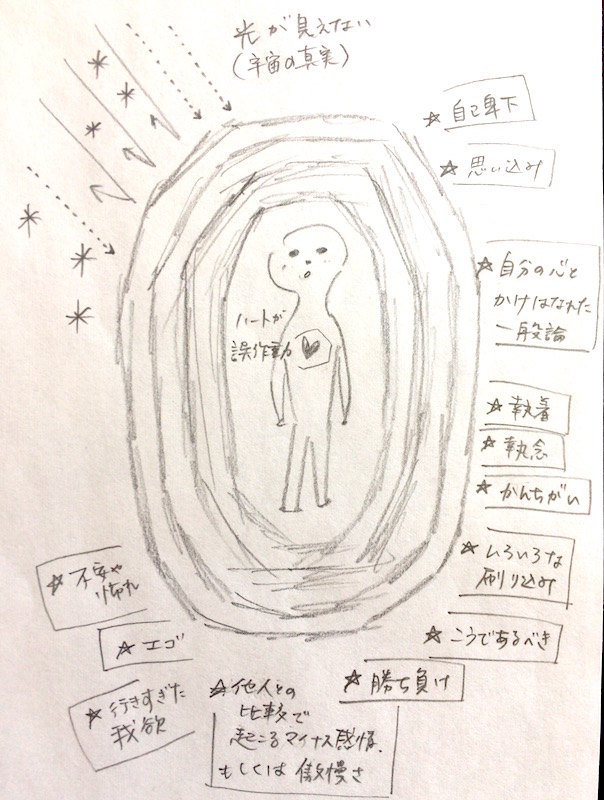 光が見えない
(宇宙の真実)
☆ 自己卑下
☆ 思い込み
☆ 自分の心と
かけはなれた
一般論
ハートが
誤作動
☆ 執着
☆ 執念
☆ かんちがい
☆ いろいろな
刷り込み
☆ こうであるべき
☆ 勝ち負け
☆ 不安や
怖れ
☆ エゴ
☆ 行きすぎた
我欲
☆ 他人との
比較で
起こるマイナス感情、
もしくは 傲慢さ